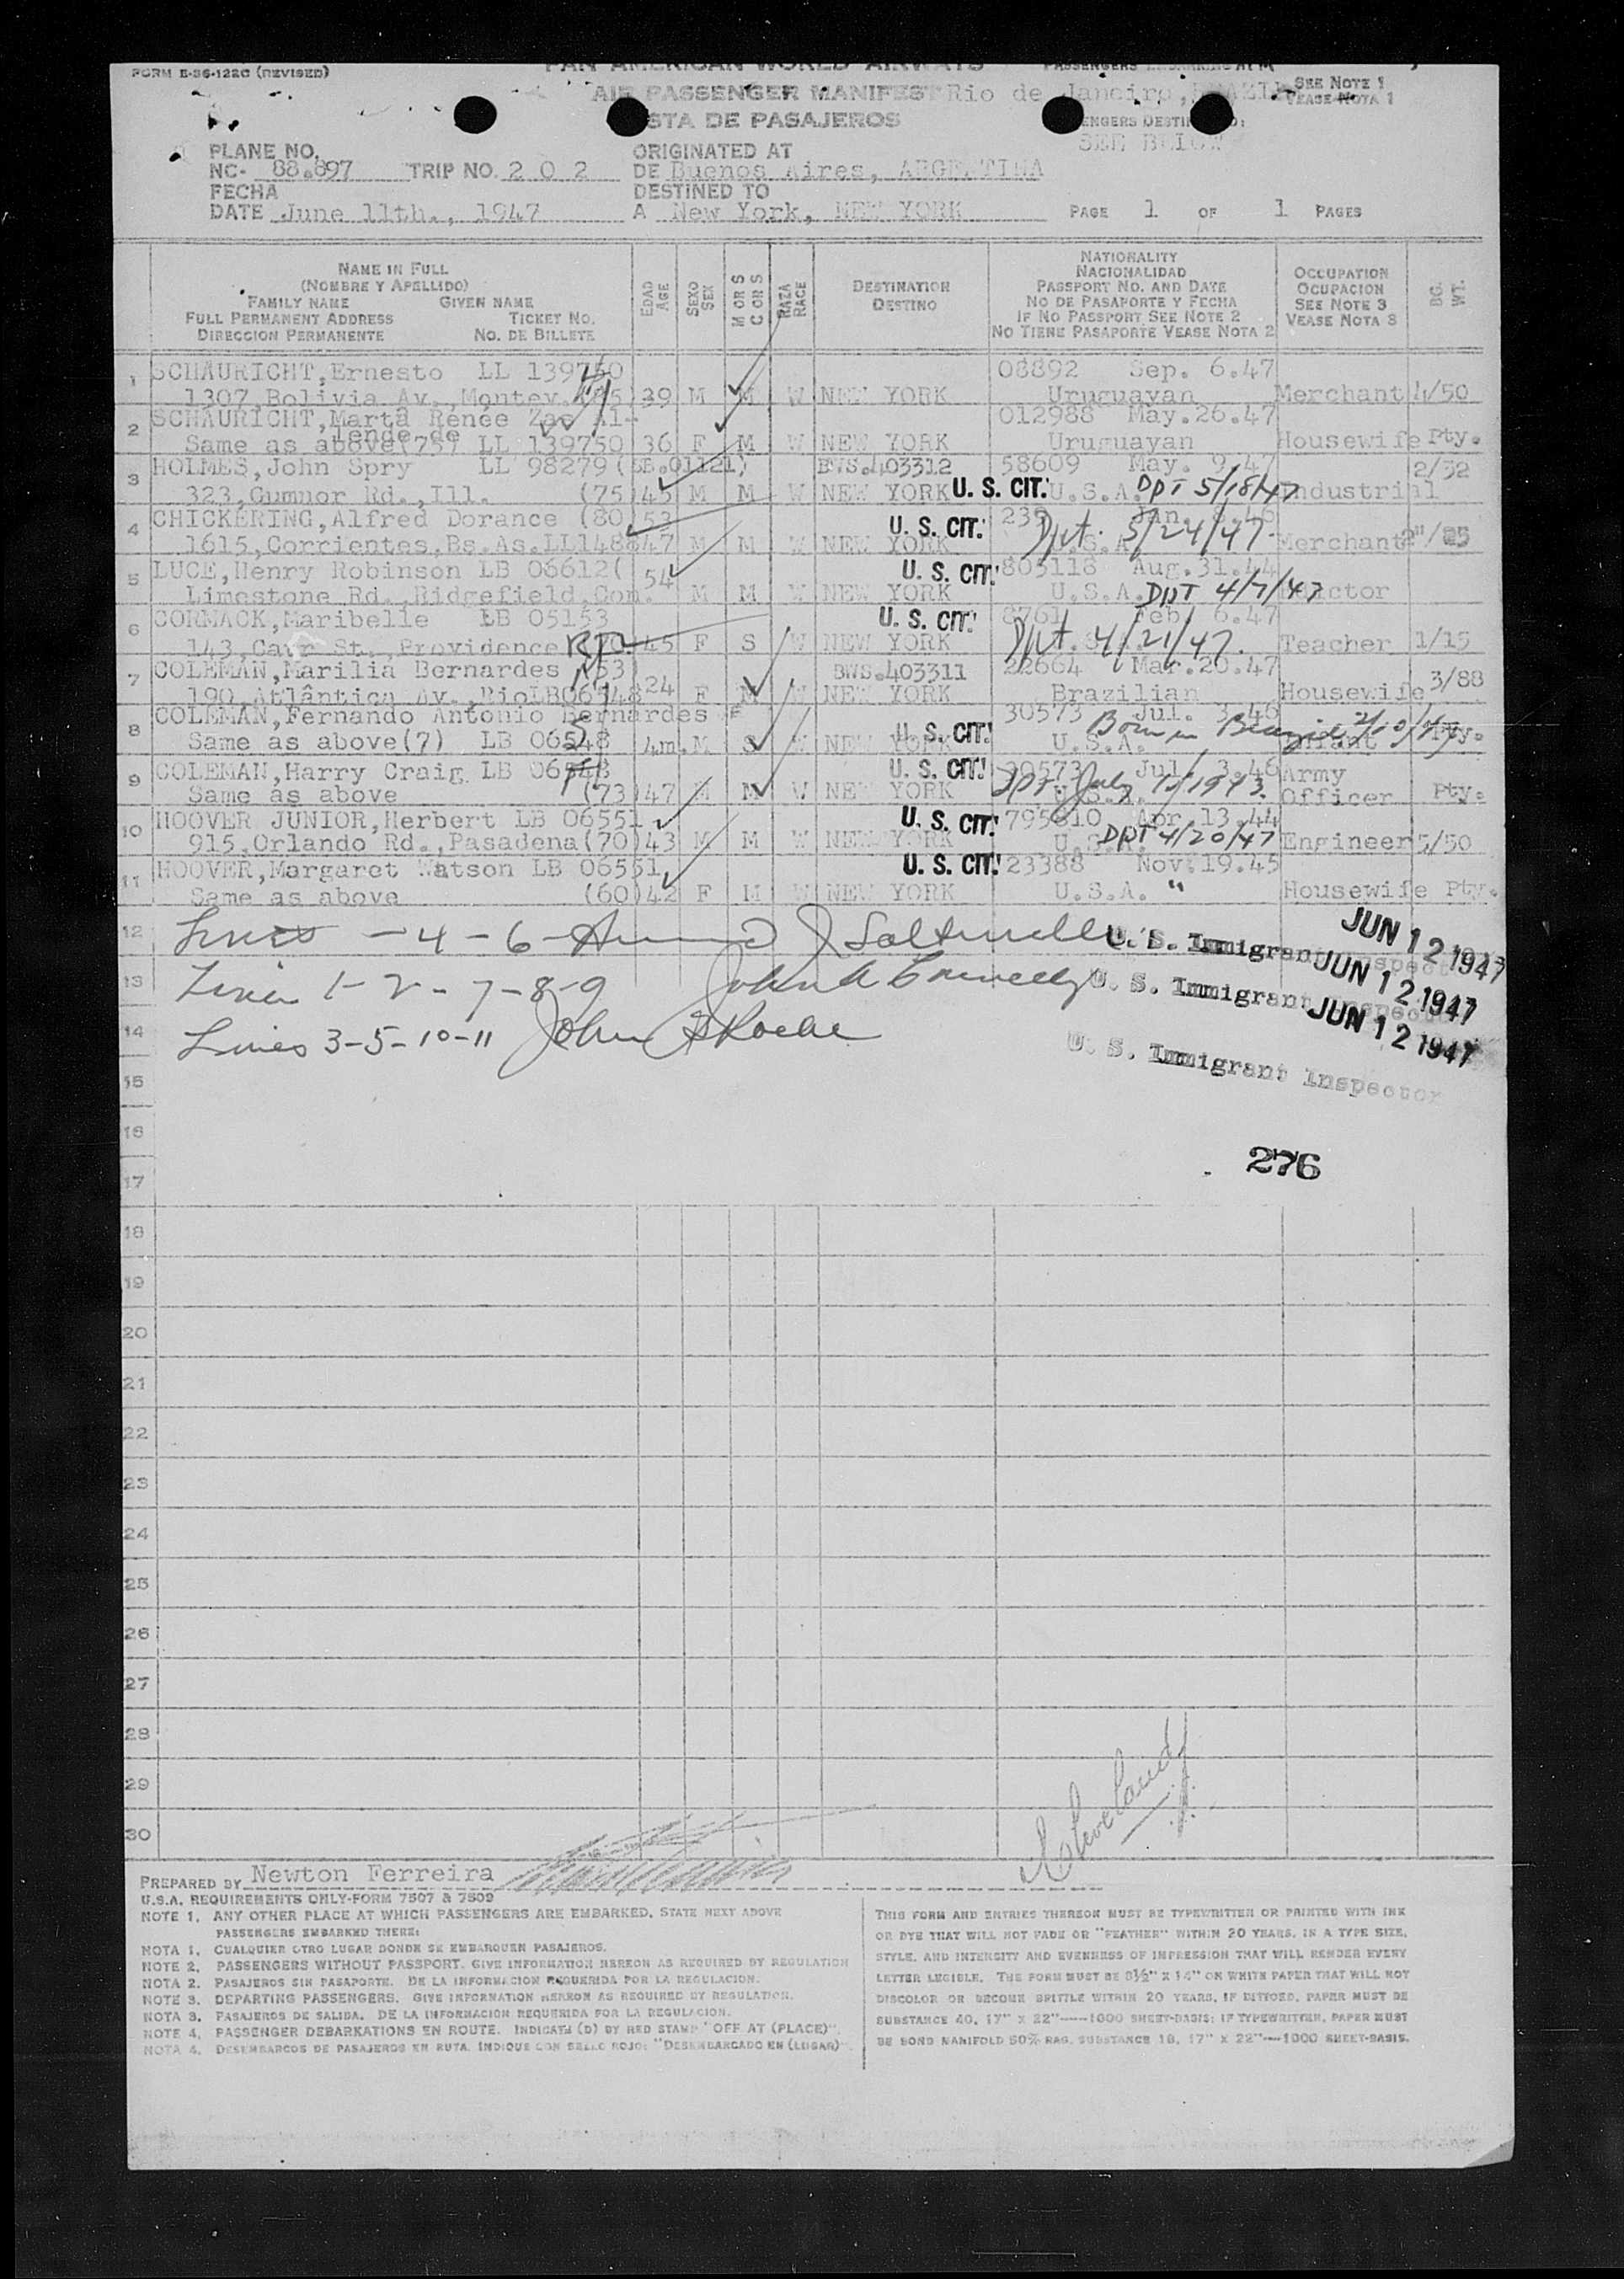 FORM E-36-122C (REVISED)
PAN AMERICAN WORLD AIRWAYS
AIR PASSENGER MANIFEST
Rio de Janeiro, BRAZIL
SEE NOTE 1
VEASE NOTA 1
LISTA DE PASAJEROS
SEE BELOW
PLANE NO.
NC- 88.897 TRIP NO. 2 0 2
ORIGINATED AT
DE Buenos Aires, ARGENTINA
FECHA
DATE June 11th., 1947
DESTINED TO
A New York, NEW YORK
PAGE 1 OF 1 PAGES
NAME IN FULL
(NOMBRE Y APELLIDO)
FAMILY NAME GIVEN NAME
FULL PERMANENT ADDRESS TICKET NO.
DIRECCION PERMANENTE NO. DE BILLETE
EDAD AGE
SEXO SEX
M OR S C OR S
RAZA RACE
DESTINATION
DESTINO
NATIONALITY
NACIONALIDAD
PASSPORT NO. AND DATE
NO DE PASAPORTE Y FECHA
IF NO PASSPORT SEE NOTE 2
NO TIENE PASAPORTE VEASE NOTA 2
OCCUPATION
OCUPACION
SEE NOTE 3
VEASE NOTA 3
BG. WT.
1 SCHAURICHT, Ernesto LL 139750 08892 Sep. 6.47
1307, Bolivia Av., Montev. 39 M M W NEW YORK Uruguayan Merchant 4/50
2 SCHAURICHT, Marta Renée 012988 May.26.47
lende de
Same as above (75) LL 139750 36 F M W NEW YORK Uruguayan Housewife Pty.
3 HOLMES, John Spry LL 98279 (SB.01121) BWS.403312 58609 May. 9.47 2/32
323, Cumnor Rd., Ill. (75) 45 M M W NEW YORK U. S. CIT. U.S.A. DPT 5/18/47 Industrial
4 CHICKERING, Alfred Dorance (80) 53 U. S. CIT. Jan. 8.46
1615, Corrientes, Bs. As. M M W NEW YORK U.S.A. Dpt. 5/24/47 Merchant
5 LUCE, Henry Robinson LB 06612 ( 54 U. S. CIT. 803118 Aug.31.44
Limestone Rd., Ridgefield, Con. M M W NEW YORK U.S.A. DPT 4/7/47
6 CORMACK, Maribelle LB 05153 U. S. CIT. 8761 Feb. 6.47
143, Carr St., Providence 45 F S W NEW YORK Dpt. 4/21/47. Teacher 1/15
7 COLEMAN, Marilia Bernardes (53) BWS.403311 22664 Mar.20.47
190, Atlântica Av., Rio LB06548 24 F M W NEW YORK Brazilian Housewife 3/88
8 COLEMAN, Fernando Antonio Bernardes 30573 Jul. 3.46
Same as above (7) LB 06548 4m. M S W NEW YORK U. S. CIT. U.S.A. Born in Infant Pty.
9 COLEMAN, Harry Craig LB 06548 U. S. CIT. 30573 Jul. 3.46 Army
Same as above (73) 47 M M W NEW YORK U.S.A. Officer Pty.
10 HOOVER JUNIOR, Herbert LB 06551 U. S. CIT. 795610 Apr.13.44
915, Orlando Rd., Pasadena (70) 43 M M W NEW YORK U.S.A. DPT 4/20/47 Engineer 5/50
11 HOOVER, Margaret Watson LB 06551 U. S. CIT. 23388 Nov.19.45
Same as above (60) 42 F M W NEW YORK U.S.A. " Housewife Pty.
12 Lines - 4 - 6 - U. S. Immigrant Inspector JUN 12 1947
13 Lines 1 - 2 - 7 - 8 - 9 U. S. Immigrant Inspector JUN 12 1947
14 Lines 3 - 5 - 10 - 11 John Roche JUN 12 1947
U. S. Immigrant Inspector
15
16
276
17
18
19
20
21
22
23
24
25
26
27
28
29
30
Cleveland
PREPARED BY Newton Ferreira
U.S.A. REQUIREMENTS ONLY-FORM 7507 & 7509
NOTE 1. ANY OTHER PLACE AT WHICH PASSENGERS ARE EMBARKED, STATE NEXT ABOVE
PASSENGERS EMBARKED THERE:
NOTA 1. CUALQUIER OTRO LUGAR DONDE SE EMBARQUEN PASAJEROS.
NOTE 2. PASSENGERS WITHOUT PASSPORT. GIVE INFORMATION HEREON AS REQUIRED BY REGULATION
NOTA 2. PASAJEROS SIN PASAPORTE. DE LA INFORMACION REQUERIDA POR LA REGULACION.
NOTE 3. DEPARTING PASSENGERS. GIVE INFORMATION HEREON AS REQUIRED BY REGULATION.
NOTA 3. PASAJEROS DE SALIDA. DE LA INFORMACION REQUERIDA POR LA REGULACION.
NOTE 4. PASSENGER DEBARKATIONS EN ROUTE. INDICATE (D) BY RED STAMP "OFF AT (PLACE)".
NOTA 4. DESEMBARCOS DE PASAJEROS EN RUTA. INDIQUE CON SELLO ROJO: "DESEMBARCADO EN (LUGAR)".
THIS FORM AND ENTRIES THEREON MUST BE TYPEWRITTEN OR PRINTED WITH INK
OR DYE THAT WILL NOT FADE OR "FEATHER" WITHIN 20 YEARS, IN A TYPE SIZE,
STYLE, AND INTENSITY AND EVENNESS OF IMPRESSION THAT WILL RENDER EVERY
LETTER LEGIBLE. THE FORM MUST BE 8½" X 14" ON WHITE PAPER THAT WILL NOT
DISCOLOR OR BECOME BRITTLE WITHIN 20 YEARS. IF DITTOED, PAPER MUST BE
SUBSTANCE 40, 17" X 22"----1000 SHEET-BASIS; IF TYPEWRITTEN, PAPER MUST
BE BOND MANIFOLD 50% RAG, SUBSTANCE 18, 17" X 22"---1000 SHEET-BASIS.